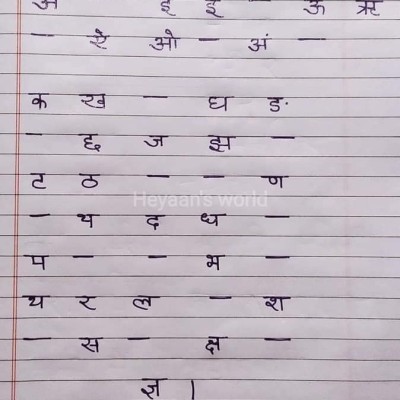 अ इ ई - ऊ ऋ
- ऐ ओ - अं -
क ख - घ ङ
- छ ज झ -
ट ठ - - ण
- थ द ध -
Heyaan's world
प - - भ -
य र ल - श
- स - क्ष -
ज्ञ ।